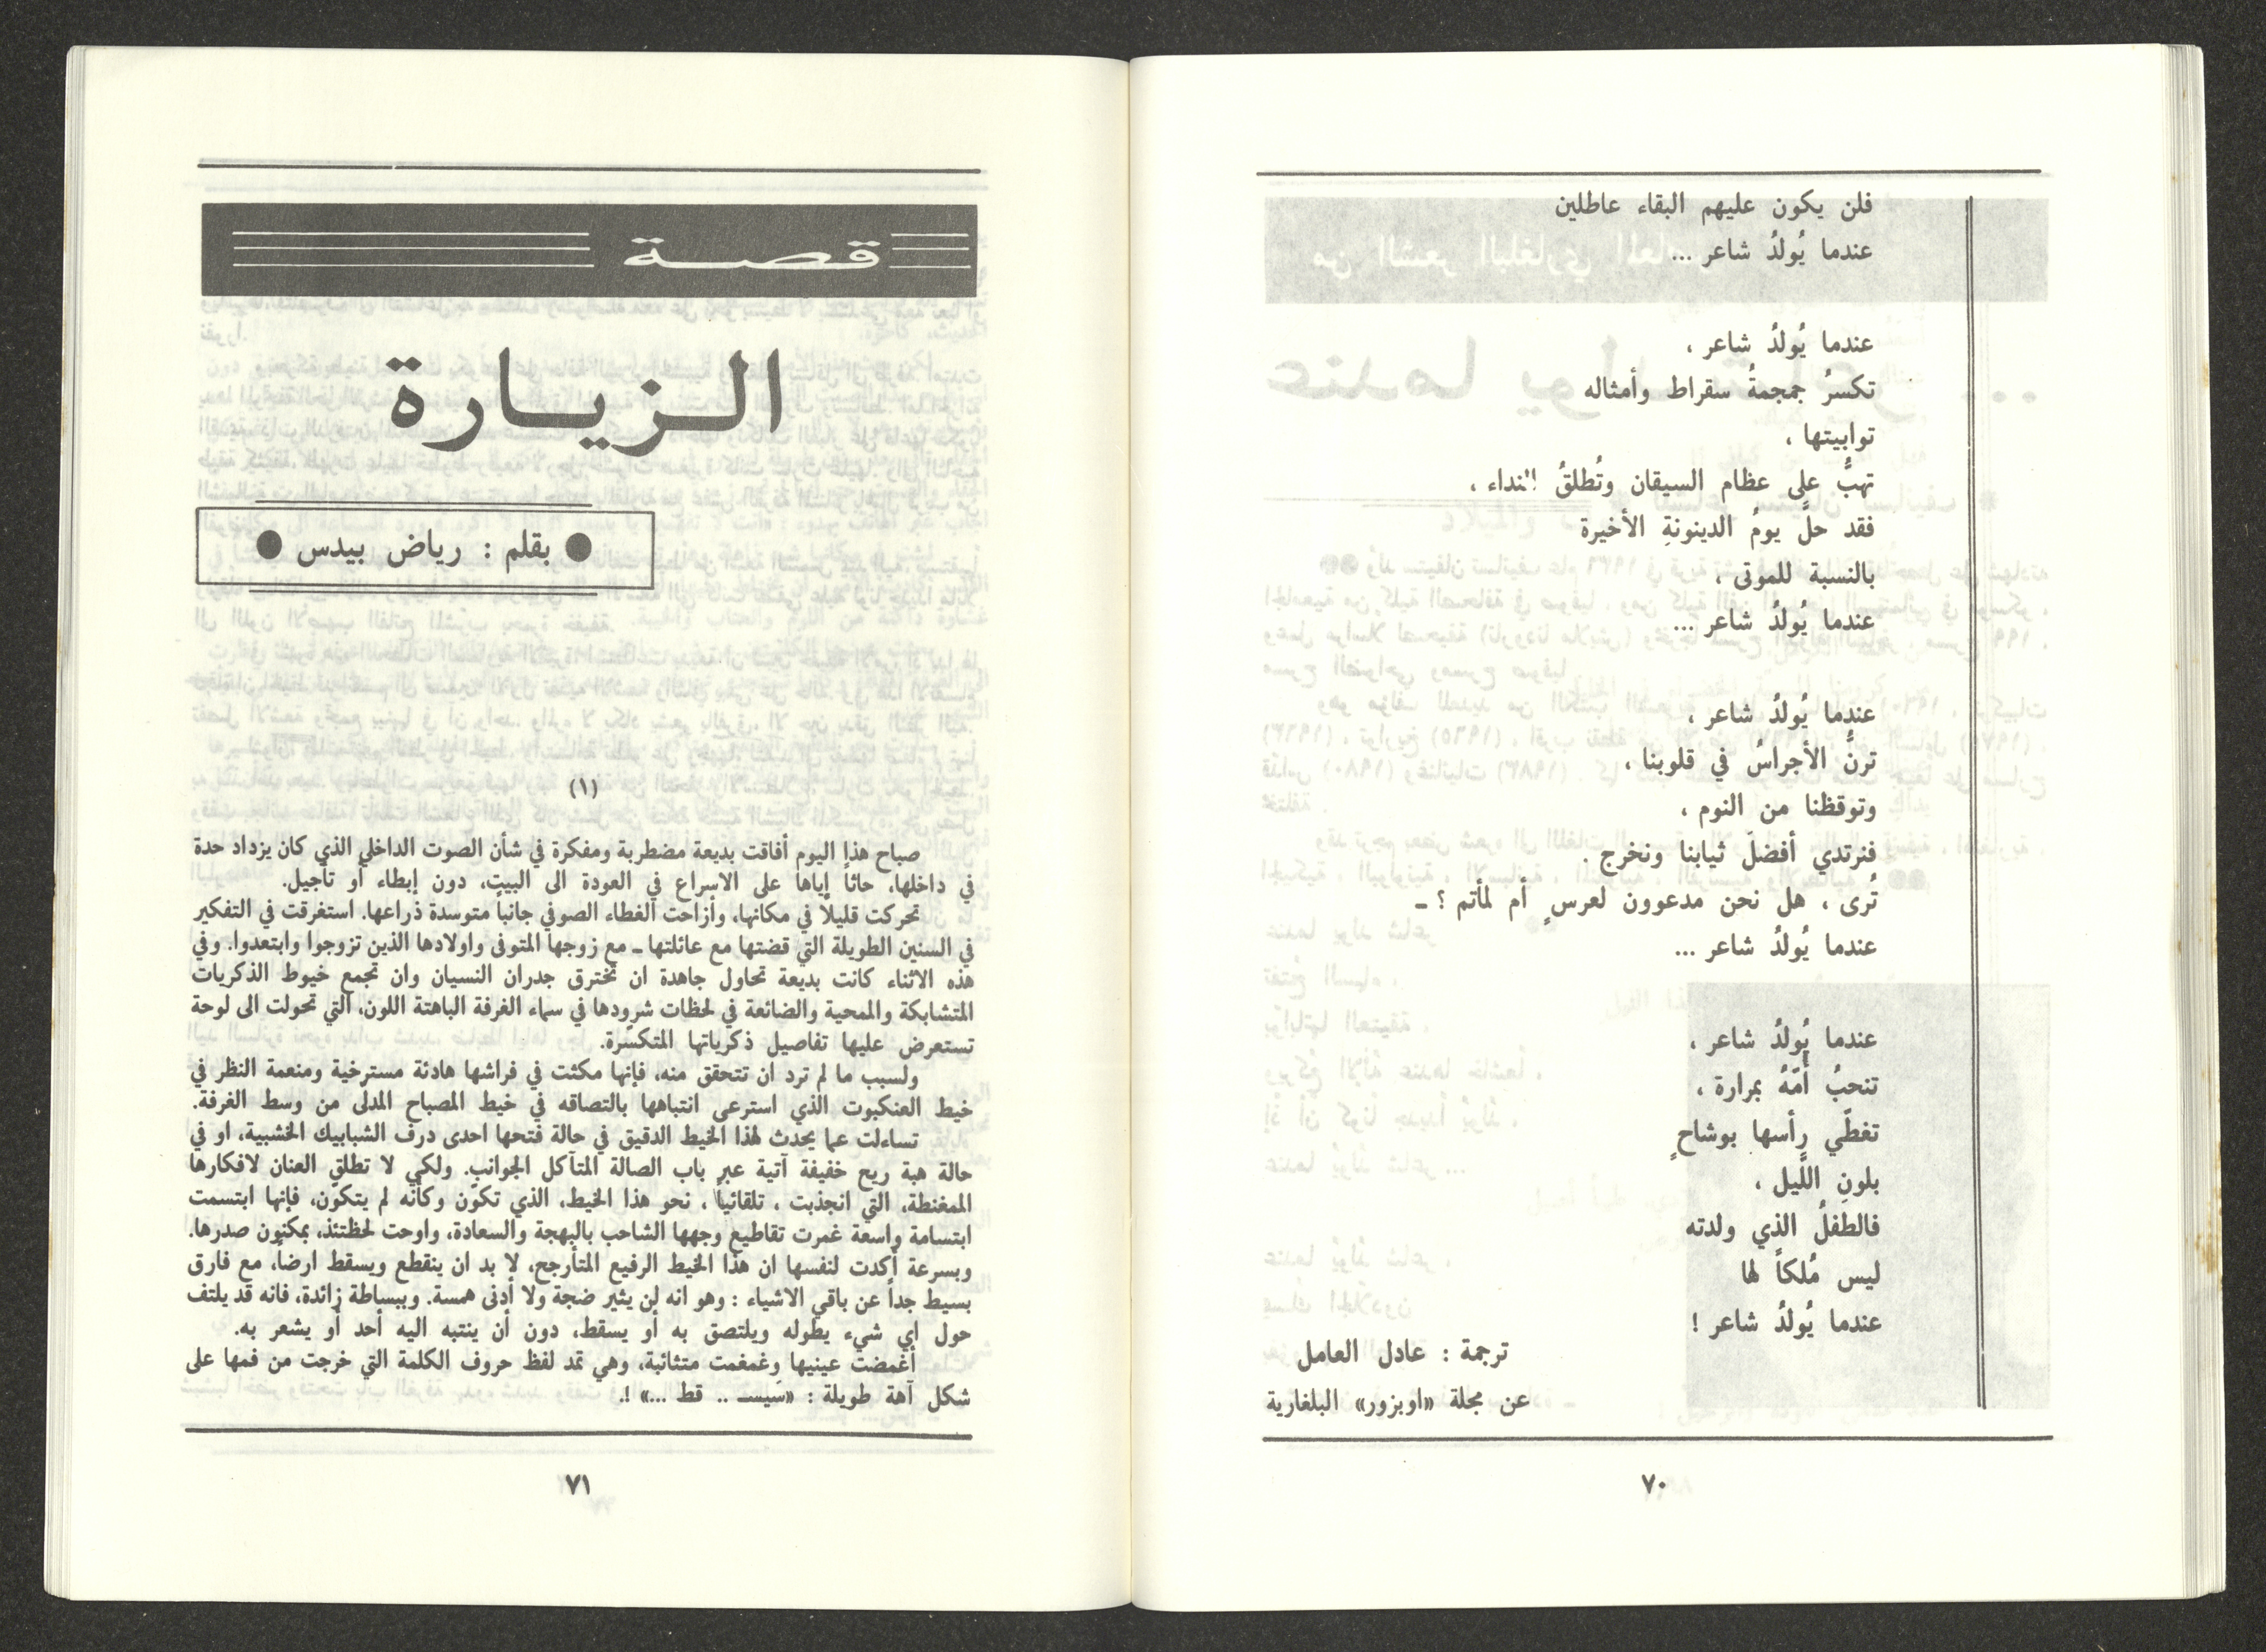 فلن يكون عليهم البقاء عاطلين
عندما يُولدُ شاعر ...
عندما يُولدُ شاعر ،
تكسرُ جمجمةُ سقراط وأمثاله
توابيتها ،
تهبُّ على عظام السيقان وتُطلقُ النداء ،
فقد حلَّ يومُ الدينونةِ الأخيرة
بالنسبة للموتى ،
عندما يُولدُ شاعر ...
عندما يُولدُ شاعر ،
ترنُّ الأجراسُ في قلوبنا ،
وتوقظنا من النوم ،
فنرتدي أفضلَ ثيابنا ونخرج .
تُرى ، هل نحن مدعوون لعرسٍ أم لمأتم ؟ ـ
عندما يُولدُ شاعر ...
عندما يُولدُ شاعر ،
تنحبُ أُمّهُ بمرارة ،
تغطّي رأسها بوشاحٍ
بلونِ اللَّيل ،
فالطفلُ الذي ولدته
ليس مُلكاً لها
عندما يُولدُ شاعر !
ترجمة : عادل العامل
عن مجلة «اوبزور» البلغارية
٧٠
قصة
الزيارة
● بقلم : رياض بيدس ●
(١)
صباح هذا اليوم أفاقت بديعة مضطربة ومفكرة في شأن الصوت الداخلي الذي كان يزداد حدة
في داخلها، حاثاً إياها على الاسراع في العودة الى البيت، دون إبطاء أو تأجيل.
تحركت قليلاً في مكانها، وأزاحت الغطاء الصوفي جانباً متوسدة ذراعها. استغرقت في التفكير
في السنين الطويلة التي قضتها مع عائلتها ـ مع زوجها المتوفى واولادها الذين تزوجوا وابتعدوا. وفي
هذه الاثناء كانت بديعة تحاول جاهدة ان تخترق جدران النسيان وان تجمع خيوط الذكريات
المتشابكة والممحية والضائعة في لحظات شرودها في سماء الغرفة الباهتة اللون، التي تحولت الى لوحة
تستعرض عليها تفاصيل ذكرياتها المتكسّرة.
ولسبب ما لم ترد ان تتحقق منه، فإنها مكثت في فراشها هادئة مسترخية ومنعمة النظر في
خيط العنكبوت الذي استرعى انتباهها بالتصاقه في خيط المصباح المدلى من وسط الغرفة.
تساءلت عما يحدث لهذا الخيط الدقيق في حالة فتحها احدى درف الشبابيك الخشبية، او في
حالة هبة ريح خفيفة آتية عبر باب الصالة المتآكل الجوانب. ولكي لا تطلق العنان لافكارها
الممغنطة، التي انجذبت ، تلقائياً ، نحو هذا الخيط، الذي تكوّن وكأنه لم يتكوّن، فإنها ابتسمت
ابتسامة واسعة غمرت تقاطيع وجهها الشاحب بالبهجة والسعادة، واوحت لحظتئذ، بمكنون صدرها.
وبسرعة أكدت لنفسها ان هذا الخيط الرفيع المتأرجح، لا بد ان ينقطع ويسقط ارضاً، مع فارق
بسيط جداً عن باقي الاشياء : وهو انه لن يثير ضجة ولا أدنى همسة. وببساطة زائدة، فانه قد يلتف
حول اي شيء يطوله ويلتصق به أو يسقط، دون أن ينتبه اليه أحد أو يشعر به.
أغمضت عينيها وغمغمت متثائبة، وهي تمد لفظ حروف الكلمة التي خرجت من فمها على
شكل آهة طويلة : «سَيسـ .. قط ...» !.
٧١